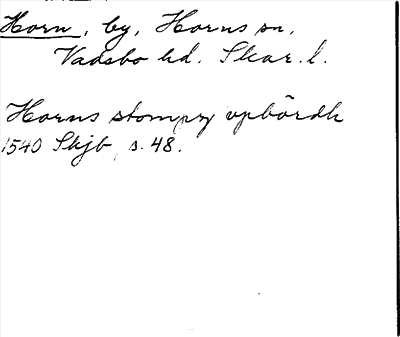 Horn, by, Horns sn,
Vadsbo hd. Skar. l.
Horns stompn upbördh
1540 Skjb, s. 48.